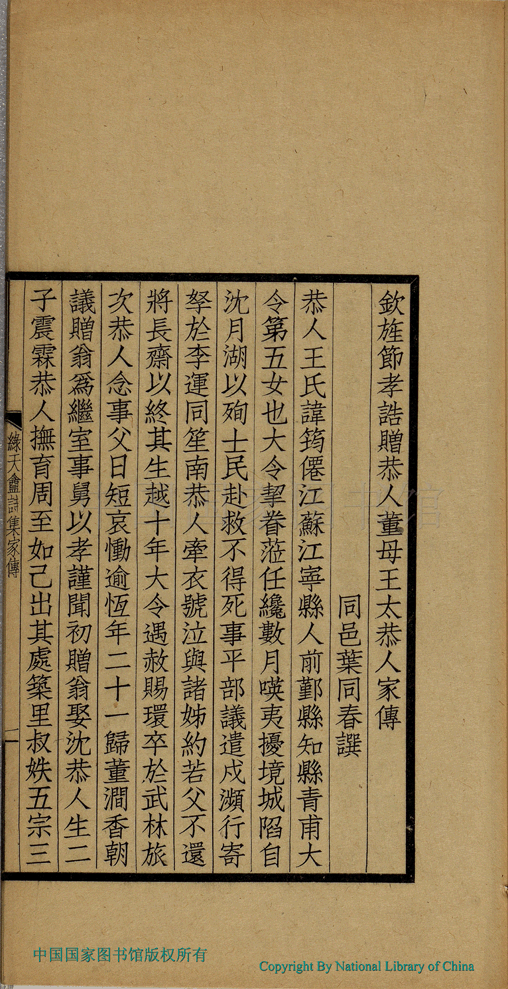 欽旌節孝誥贈恭人董母王太恭人家傳
同邑葉同春譔
恭人王氏諱筠僊江蘇江寧縣人前鄞縣知縣青甫大
令第五女也大令挈眷蒞任纔數月暎夷擾境城陷自
沈月湖以殉士民赴救不得死事平部議遣戍瀕行寄
孥於李運同笙南恭人牽衣號泣與諸姊約若父不還
將長齋以終其生越十年大令遇赦賜環卒於武林旅
次恭人念事父日短哀慟逾恆年二十一歸董澗香朝
議贈翁爲繼室事舅以孝謹聞初贈翁娶沈恭人生二
子震霖恭人撫育周至如己出其處築里叔姒五宗三
綠天盦詩集家傳
一
中国国家图书馆版权所有
Copyright By National Library of China